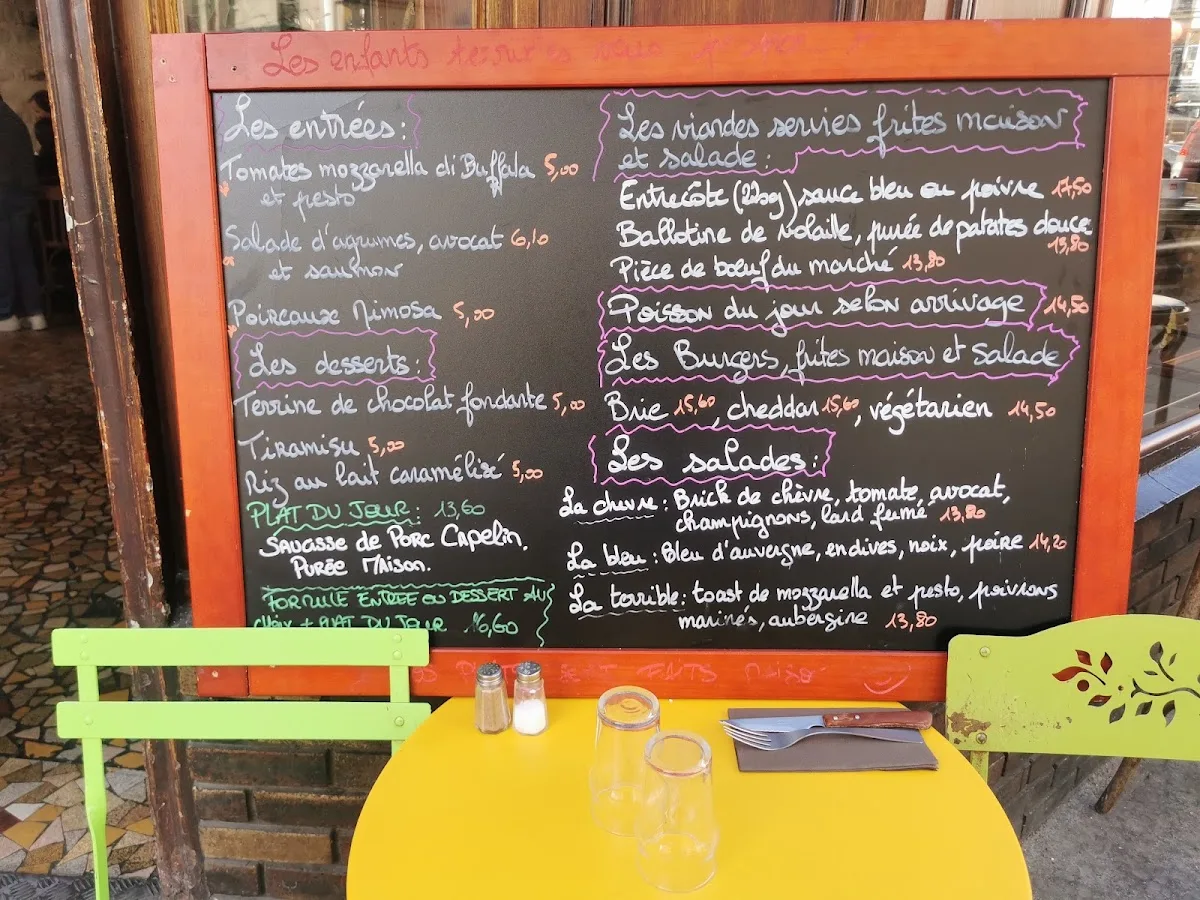 Les enfants terribles vous
Les entrées:
Tomates mozzarella di Buffala 5,00
et pesto
Salade d'agrumes, avocat 6,10
et saumon
Poireaux Mimosa 5,00
Les desserts:
Terrine de chocolat fondante 5,00
Tiramisu 5,00
Riz au lait caramélisé 5,00
PLAT DU JOUR: 13,60
Saucisse de Porc Capelin.
Purée Maison.
FORMULE ENTREE OU DESSERT AU
choix + PLAT DU JOUR 16,60
Les viandes servies frites maison
et salade:
Entrecôte (220g) sauce bleu ou poivre 17,50
Ballotine de volaille, purée de patates douce
13,80
Pièce de bœuf du marché 13,80
Poisson du jour selon arrivage 14,50
Les Burgers, frites maison et salade
Brie 15,60, cheddar 15,60, végétarien 14,50
Les salades:
La chevre: Brick de chèvre, tomate, avocat,
champignons, lard fumé 13,80
La bleu: Bleu d'auvergne, endives, noix, poire 14,20
La terrible: toast de mozzarella et pesto, poivrons
marinés, aubergine 13,80